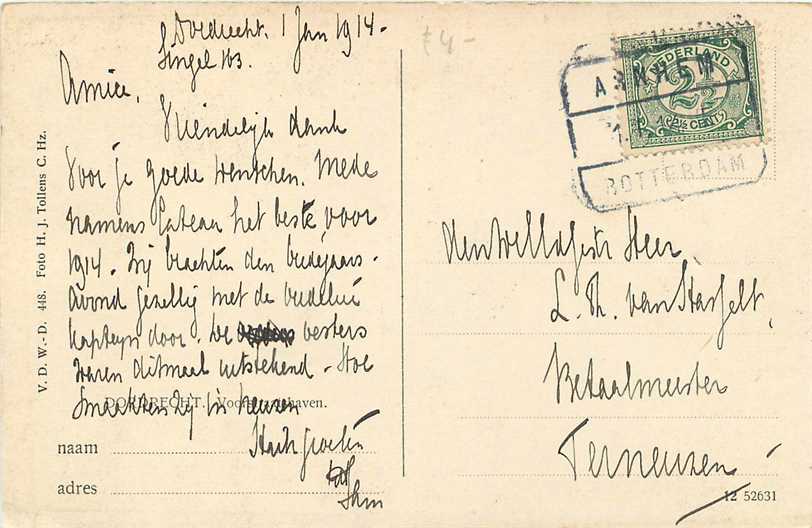 Dordrecht. 1 Jan 1914.
Singel 103.
Amice,
Vriendelijk dank
Voor je goede wenschen. Mede
namens Cateau het beste voor
1914. Wij brachten den oudejaars-
avond gezellig met de oudelui
Kapteyn door. De oesters
waren ditmaal uitstekend. Hoe
smaakten zij in
DORDRECHT. haven.
naam
adres
V. D. W.-D. 448. Foto H. J. Tollens C. Hz.
£4-
NEDERLAND
2½
CENT
ARNHEM
ROTTERDAM
Den WelEdGestr Heer
L. Th. van Hasselt,
Betaalmeester
Terneuzen
12 52631